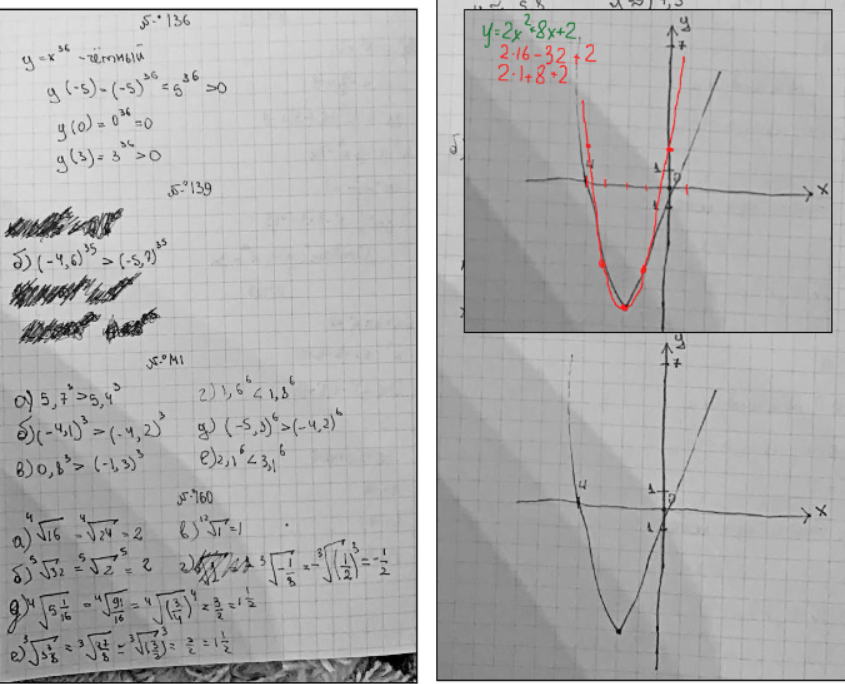 № 136
y = x³⁶ - чётный
y(-5) = (-5)³⁶ = 5³⁶ > 0
y(0) = 0³⁶ = 0
y(3) = 3³⁶ > 0
№ 139
б) (-4,6)³⁵ > (-5,7)³⁵
а) 5,7³ > 5,4³
б) (-4,1)³ > (-4,2)³
в) 0,8³ > (-1,3)³
г) 1,6⁶ < 1,8⁶
д) (-5,3)⁶ > (-4,2)⁶
е) 2,1⁶ < 3,1⁶
№ 160
а) ⁴√16 = ⁴√24 = 2
б) ⁵√32 = ⁵√2⁵ = 2
в) ¹²√1 = 1
г) ³√-1/8 = -³√(1/2)³ = -1/2
д) ⁴√5 1/16 = ⁴√91/16 = ⁴√(3/4)⁴ = 3/2 = 1 1/2
е) ³√3 3/8 = ³√27/8 = ³√(3/2)³ = 3/2 = 1 1/2
y=2x²+8x+2
2·16-32+2
2·1+8+2
y
7
4
1
0
1
x
y
7
4
1
0
1
x